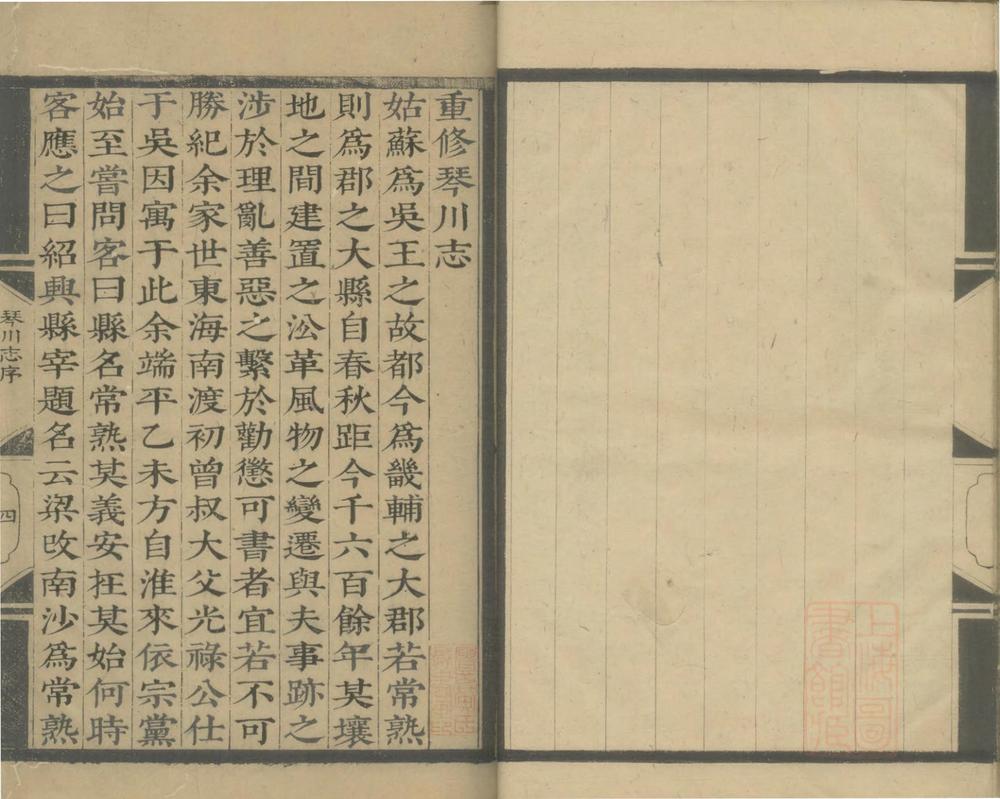 重修琴川志
姑蘇爲吳王之故都今爲畿輔之大郡若常熟
則爲郡之大縣自春秋距今千六百餘年其壤
地之間建置之㳂革風物之變遷與夫事跡之
涉於理亂善惡之繫於勸懲可書者宜若不可
勝紀余家世東海南渡初曾叔大父光祿公仕
于吳因寓于此余端平乙未方自淮來依宗黨
始至嘗問客曰縣名常熟其義安在其始何時
客應之曰紹興縣宰題名云梁改南沙爲常熟
琴川志序
四
上海圖書館藏